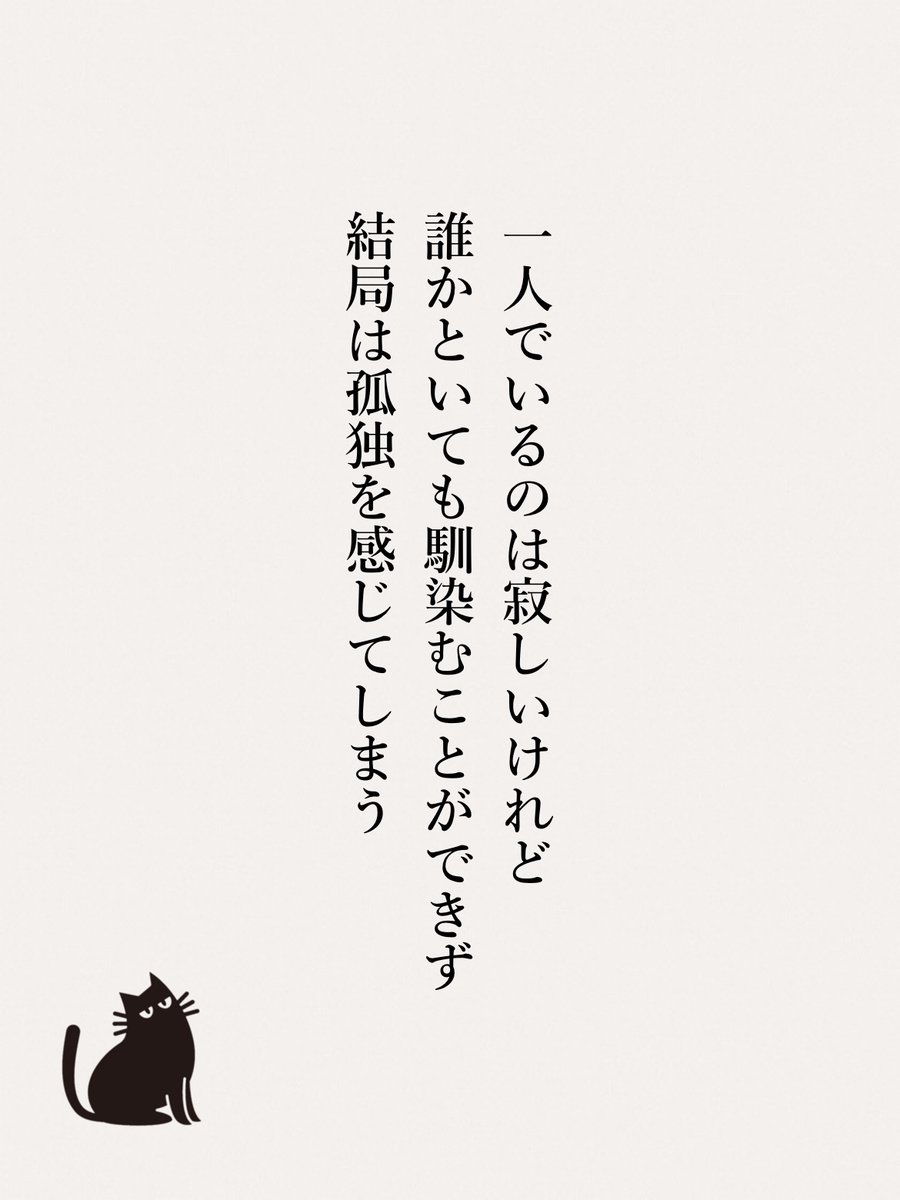 一人でいるのは寂しいけれど
誰かといても馴染むことができず
結局は孤独を感じてしまう